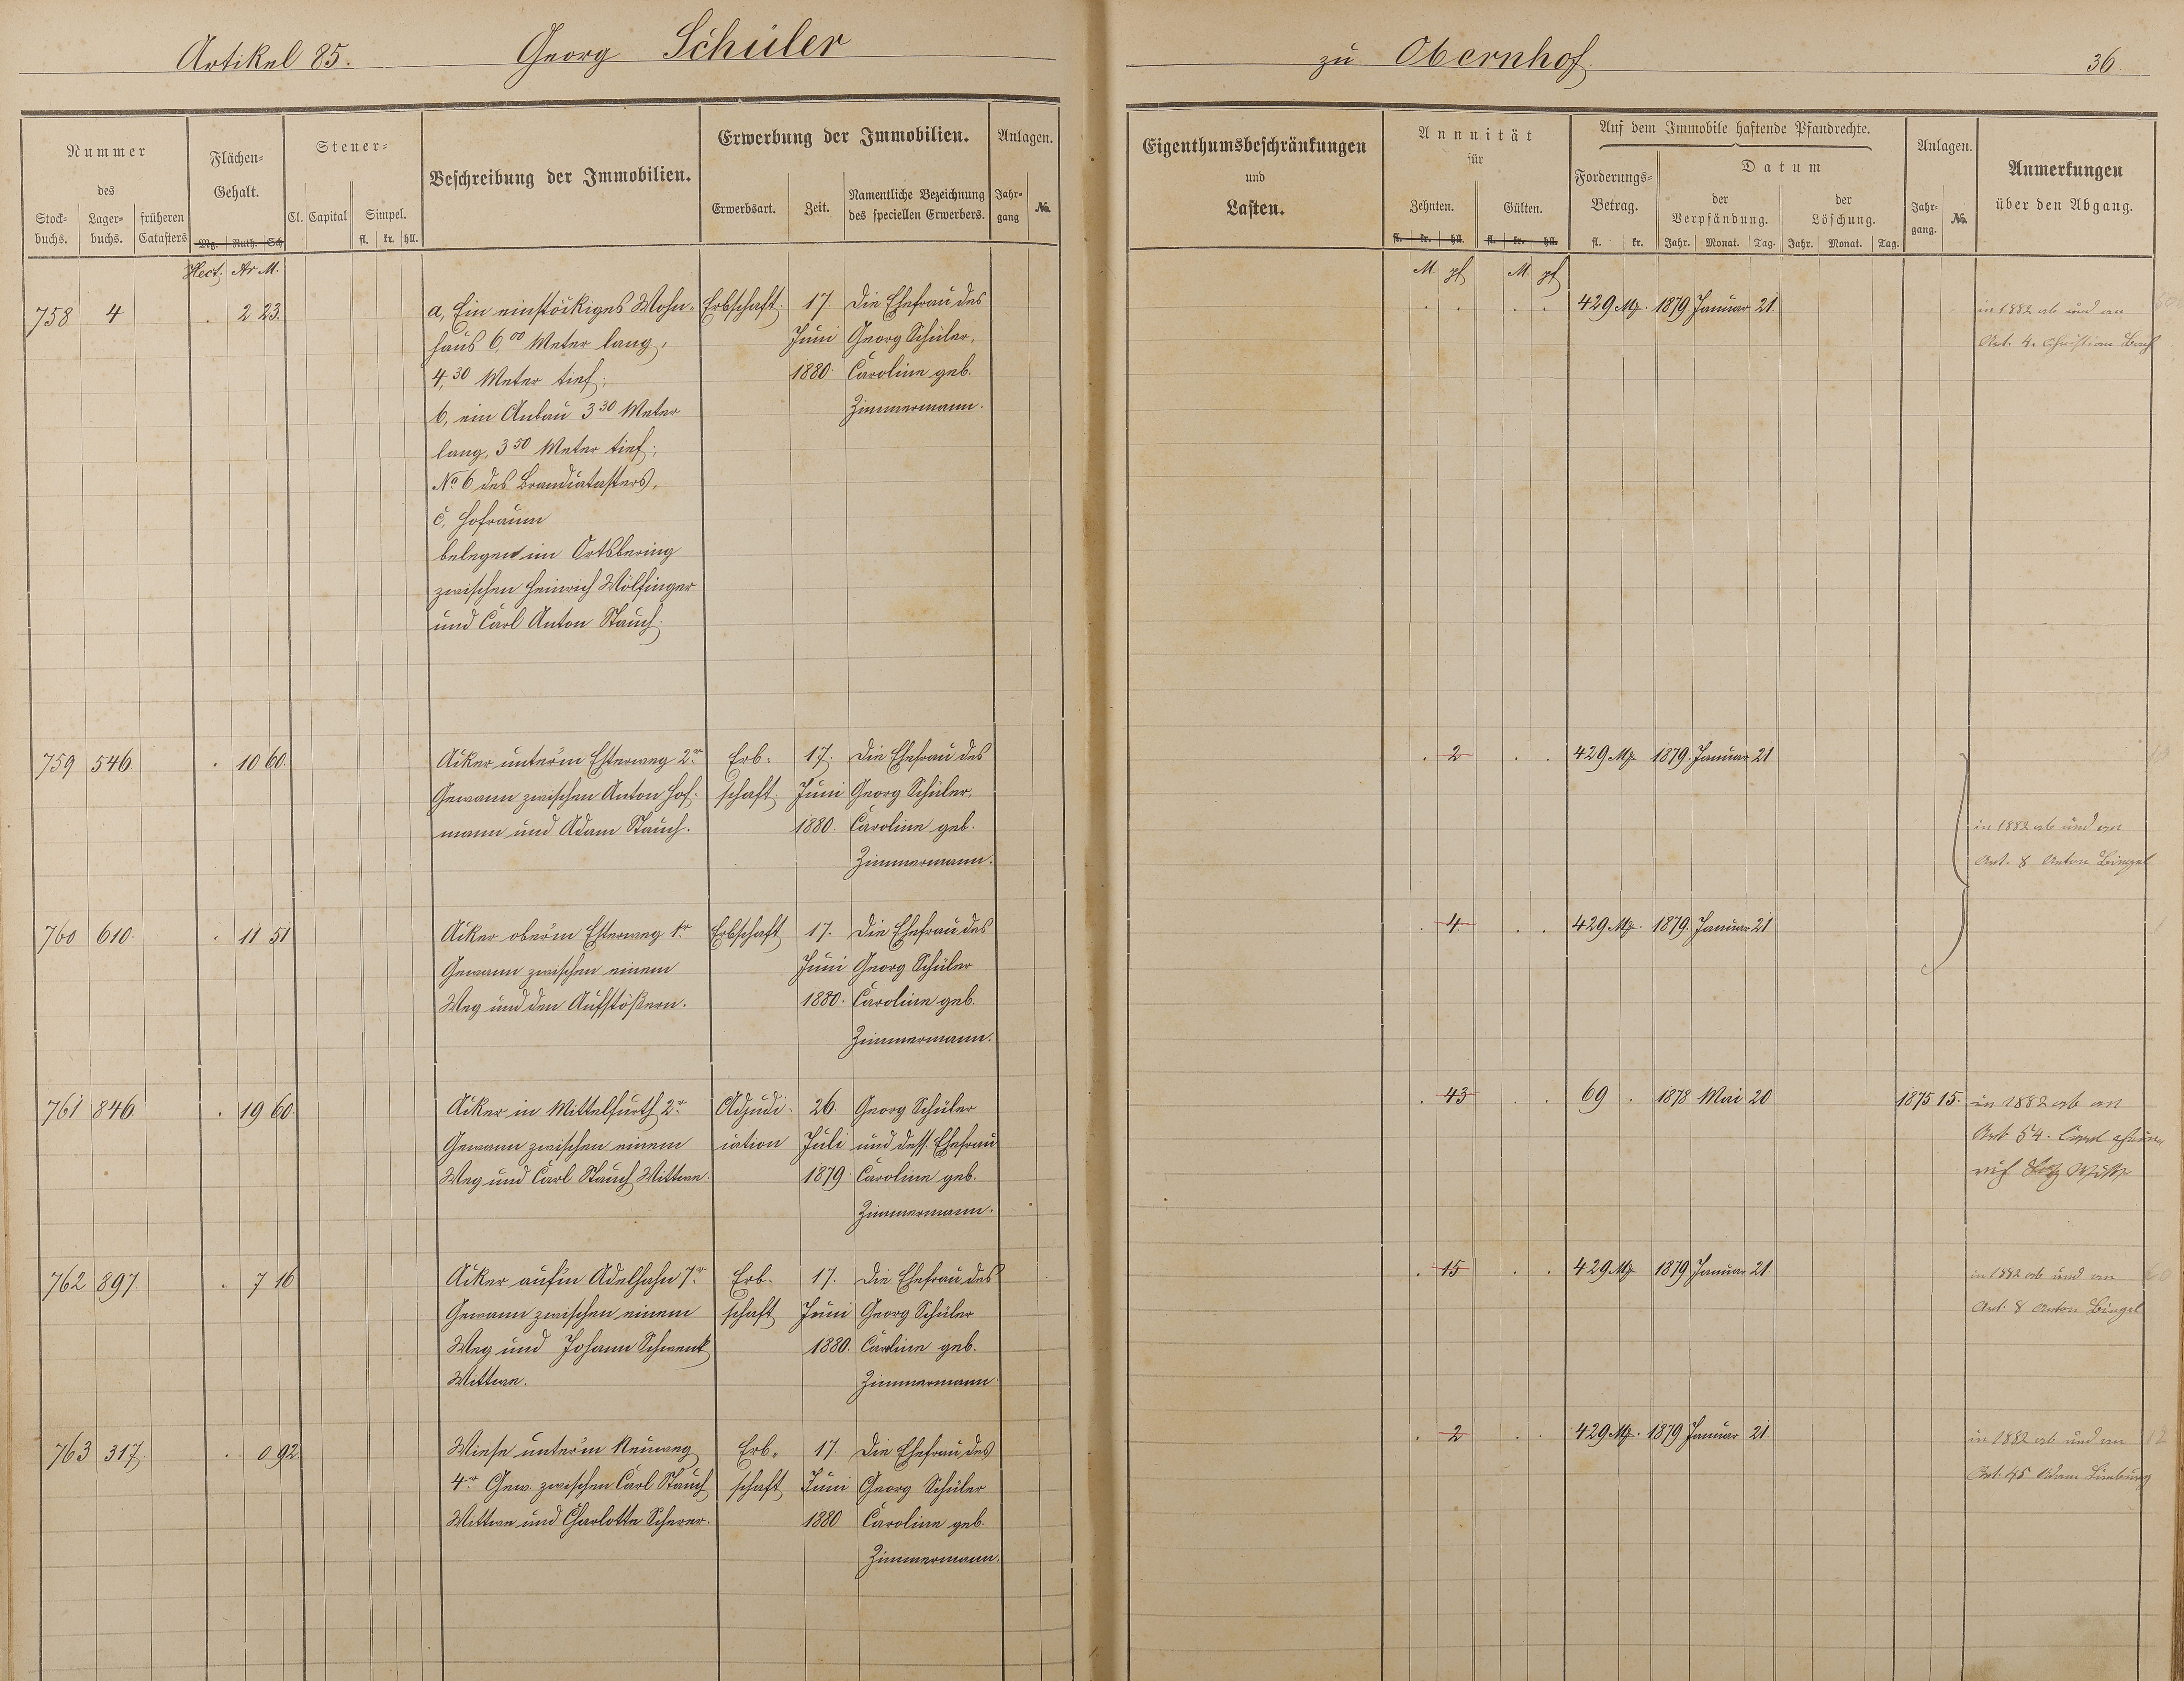 Artikel 85. Georg Schüler zu Obernhof. 36.
Nummer
des
Stock-
buchs.
Lager-
buchs.
früheren
Catasters
Flächen-
Gehalt.
Mg. Ruth. Sch.
Steuer-
Cl. Capital Simpel.
fl. kr. hll.
Beschreibung der Immobilien.
Erwerbung der Immobilien.
Erwerbsart. Zeit.
Namentliche Bezeichnung
des speciellen Erwerbers.
Anlagen.
Jahr-
gang
No.
Hect. Ar M.
758 4 . 2 23.
a, Ein einstöckiges Wohn-
haus 6,00 Meter lang,
4,30 Meter tief;
b, ein Anbau 3 30 Meter
lang, 3 50 Meter tief;
No 6 des Brandcatasters,
c, Hofraum
belegen im Ortsbering
zwischen Heinrich Wölfinger
und Carl Anton Stauch.
Erbschaft.
17
Juni
1880.
Die Ehefrau des
Georg Schüler,
Caroline geb.
Zimmermann.
759 546. . 10 60.
Acker unterm Esterweg 2r
Gewann zwischen Anton Hof-
mann und Adam Stauch.
Erb-
schaft.
17.
Juni
1880.
Die Ehefrau des
Georg Schüler,
Caroline geb.
Zimmermann.
760 610. . 11 51
Acker oberm Esterweg 1r
Gewann zwischen einem
Weg und den Aufstößern.
Erbschaft
17.
Juni
1880.
Die Ehefrau des
Georg Schüler
Caroline geb.
Zimmermann.
761 846 . 19 60.
Acker in Mittelfurth 2r
Gewann zwischen einem
Weg und Carl Stauch Wittwe.
Adjudi-
cation
26
Juli
1879.
Georg Schüler
und dess. Ehefrau
Caroline geb.
Zimmermann.
762 897. . 7 16
Acker aufm Adelhahn 7r
Gewann zwischen einem
Weg und Johann Schwenk
Wittwe.
Erb-
schaft
17.
Juni
1880.
Die Ehefrau des
Georg Schüler
Caroline geb.
Zimmermann
763 317. . 0 92.
Wiese unterm Neuweg
4r Gew. zwischen Carl Stauch
Wittwe und Charlotte Scherer.
Erb-
schaft
17
Juni
1880
Die Ehefrau des
Georg Schüler
Caroline geb.
Zimmermann.
Eigenthumsbeschränkungen
und
Lasten.
Annuität
für
Zehnten. Gülten.
fl. kr. hll. fl. kr. hll.
Auf dem Immobile haftende Pfandrechte.
Forderungs-
Betrag.
fl. kr.
Datum
der
Verpfändung.
Jahr. Monat. Tag.
der
Löschung.
Jahr. Monat. Tag.
Anlagen.
Jahr-
gang.
No.
Anmerkungen
über den Abgang.
M. pf M. pf
429 M. 1879 Januar 21.
in 1882 ab und an
Art. 4. Christian Bach
. 2 . . 429 M. 1879. Januar 21
in 1882 ab und an
Art. 8 Anton Bingel
. 4. . . 429 M. 1879. Januar 21
. 43 . . 69 . 1878 Mai 20 1875 15.
in 1882 ab an
Art 54. Carl
. 15 . . 429 M. 1879 Januar 21.
in 1882 ab und an
Art. 8 Anton Bingel
. 2 . . 429 M. 1879 Januar 21.
in 1882 ab und an
Art. 45 Adam Limburg